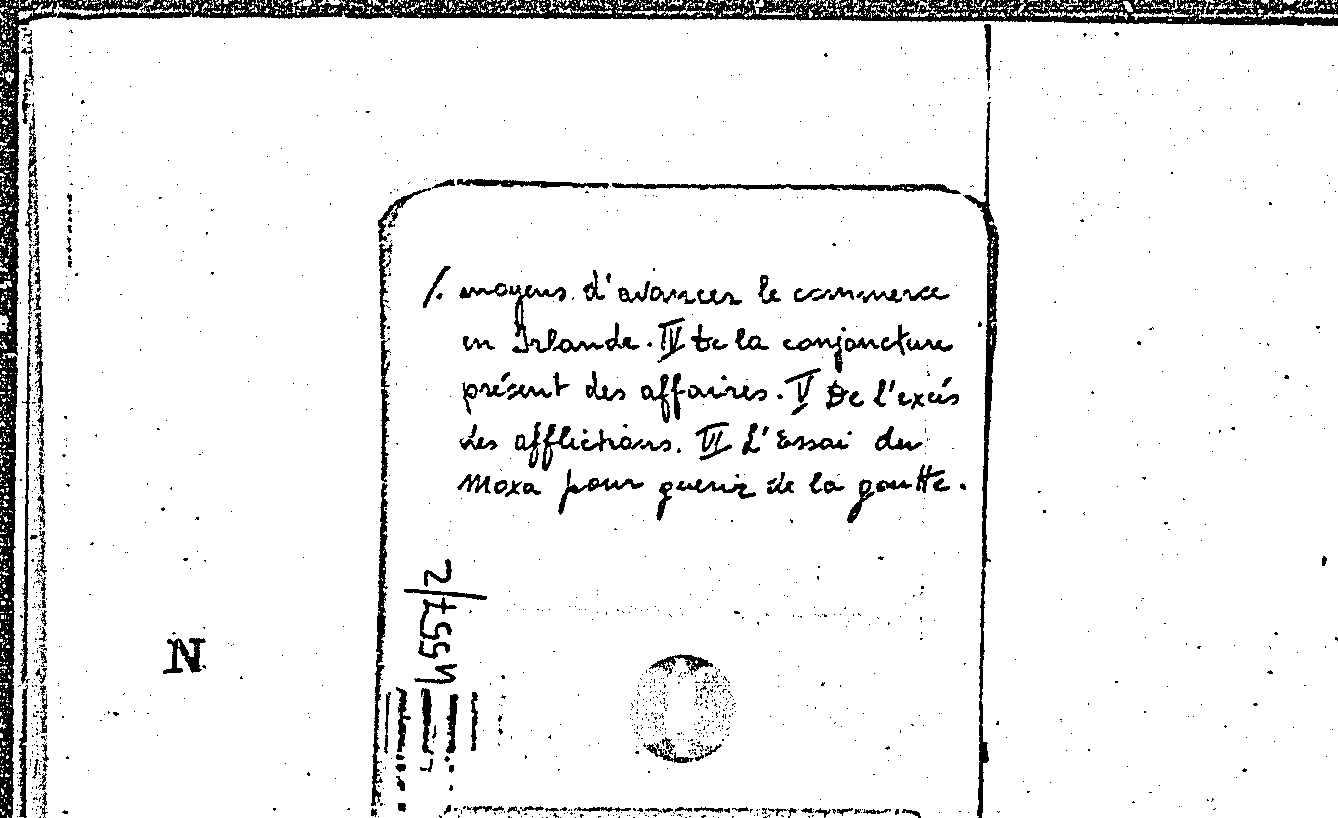 /. moyens d'avancer le commerce
en Irlande. IV De la conjoncture
présent des affaires. V De l'excés
des afflictions. VI L'Essai du
Moxa pour guerir de la goutte.
N